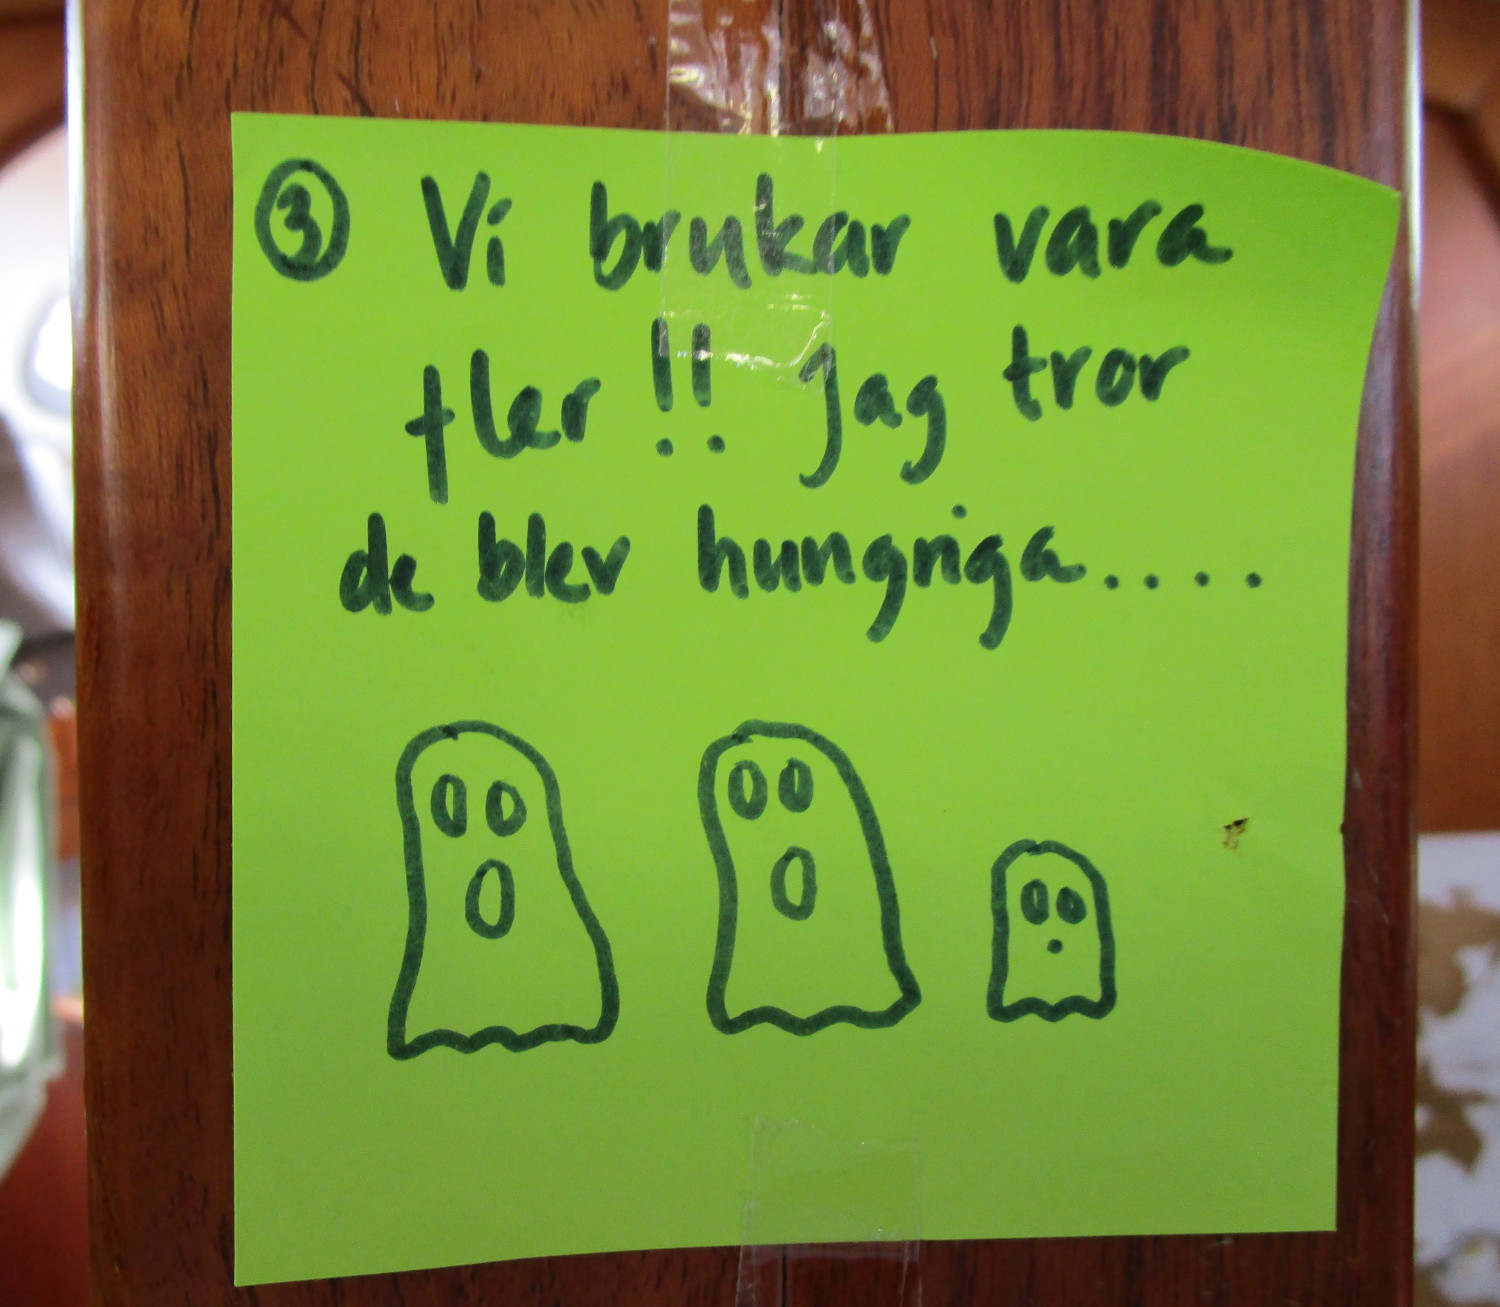 ③ Vi brukar vara
fler!! Jag tror
de blev hungriga....